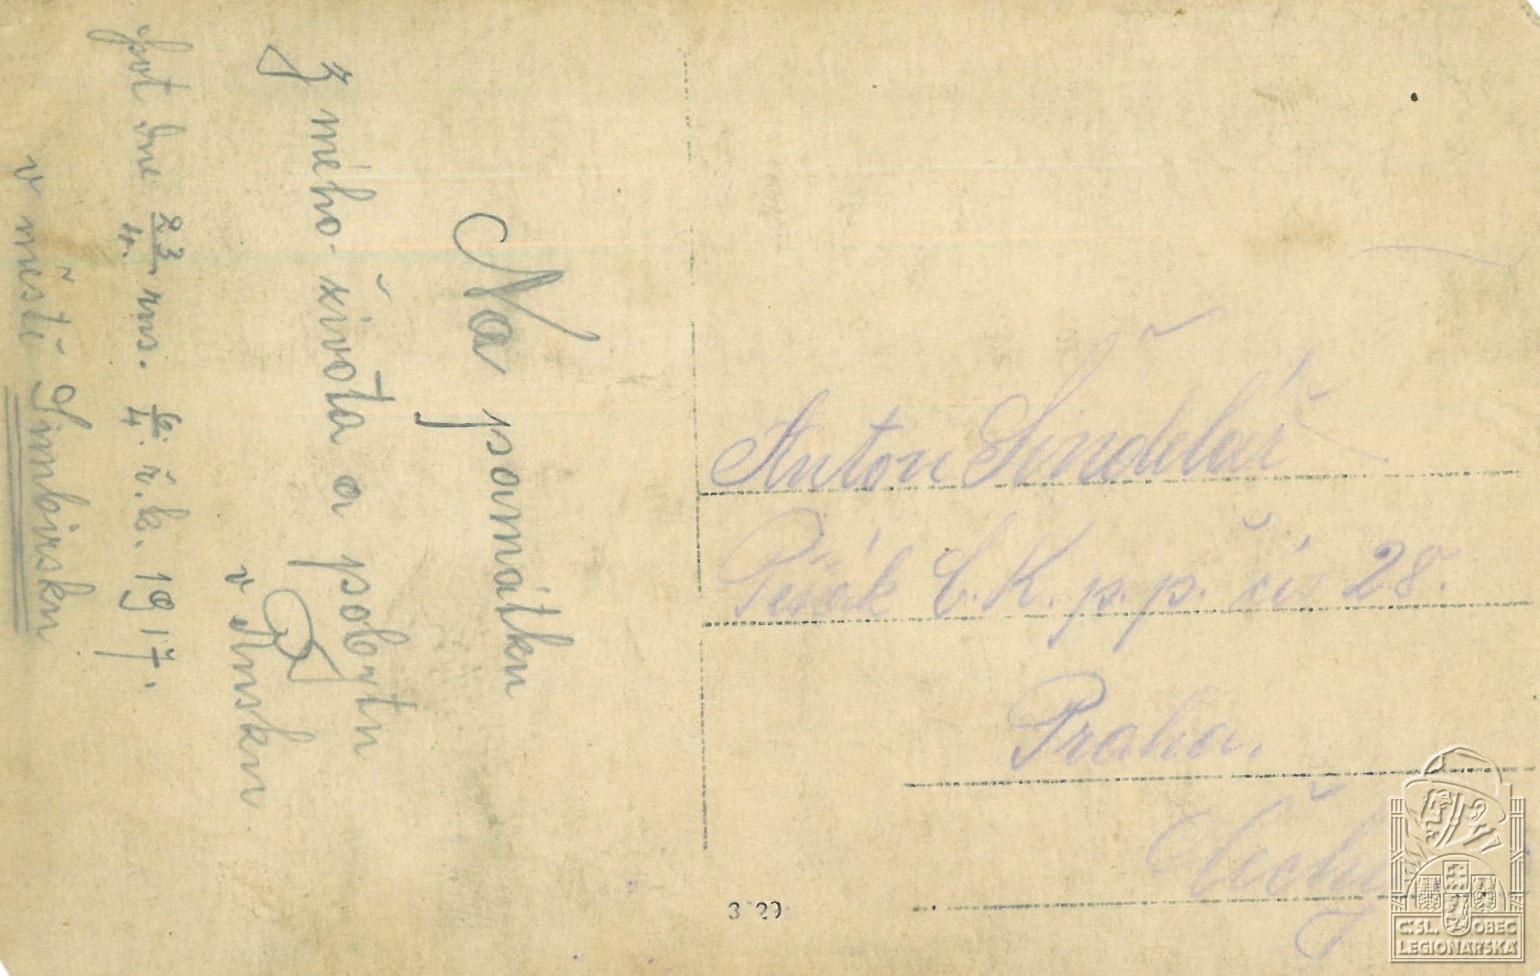 Na památku
z mého života a pobytu
v Rusku
fot dne 23/4. rus. 6./4. ř.k. 1917.
v městě Simbirsku
Anton Šindelář
Pěšák C. K. p. p. čís 28.
Praha.
Čechy
3 29
ČSL. OBEC
LEGIONÁŘSKÁ